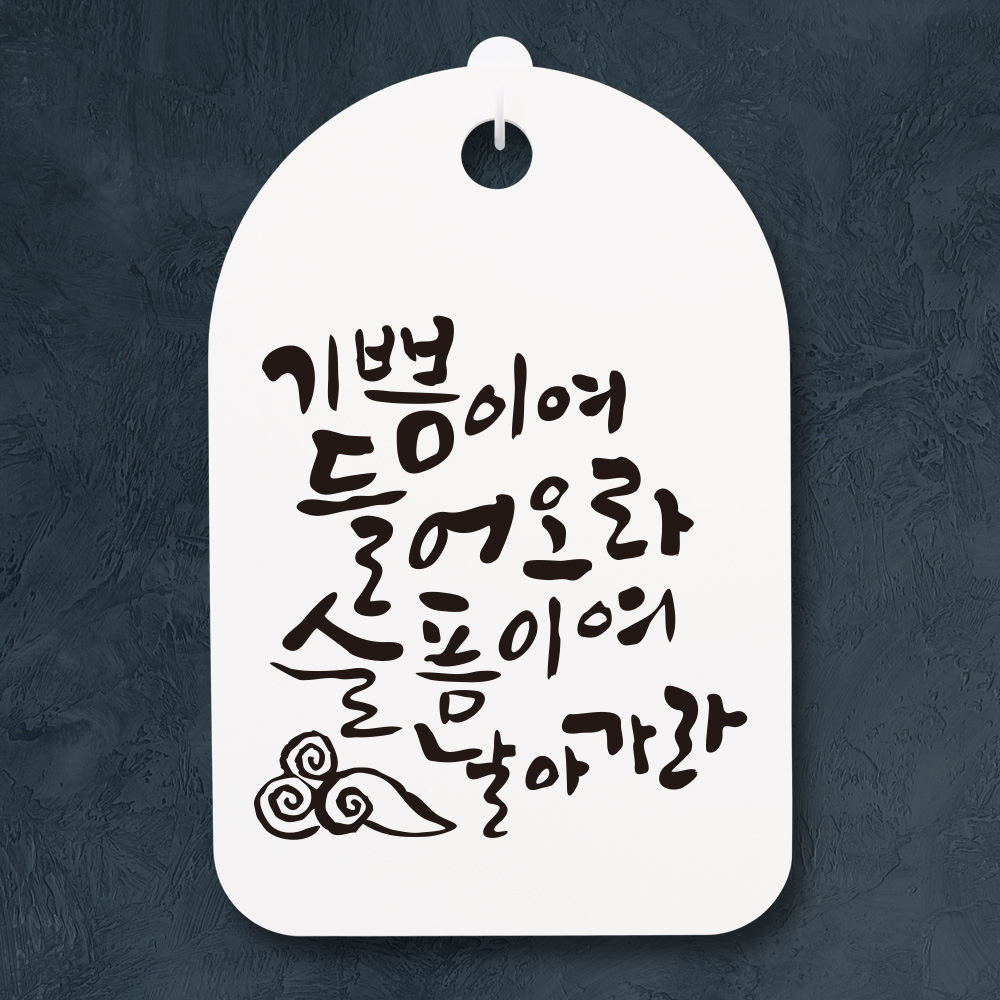 기쁨이여
들어오라
슬픔이여
날아가라